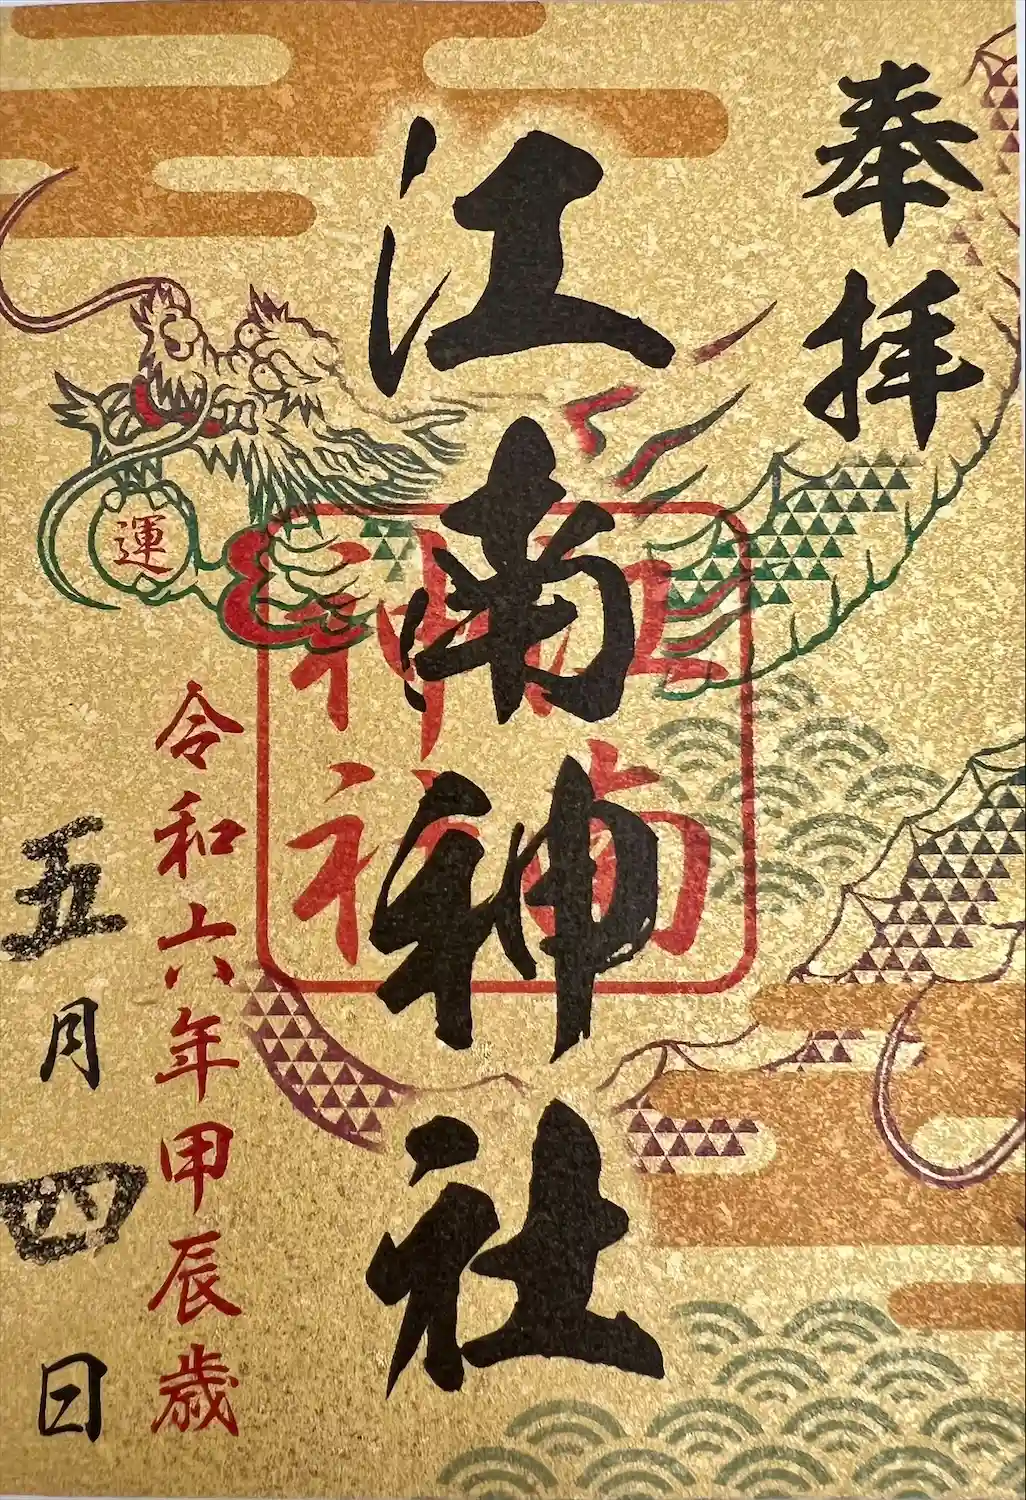 奉拝
江南神社
江南
神社
運
令和六年甲辰歳
五月四日